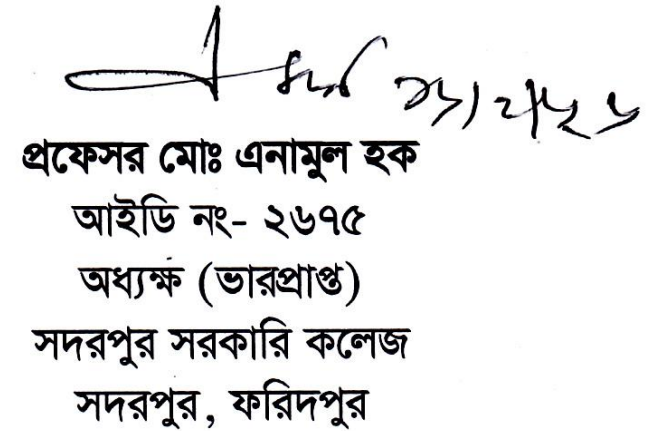 প্রফেসর মোঃ এনামুল হক
আইডি নং- ২৬৭৫
অধ্যক্ষ (ভারপ্রাপ্ত)
সদরপুর সরকারি কলেজ
সদরপুর, ফরিদপুর